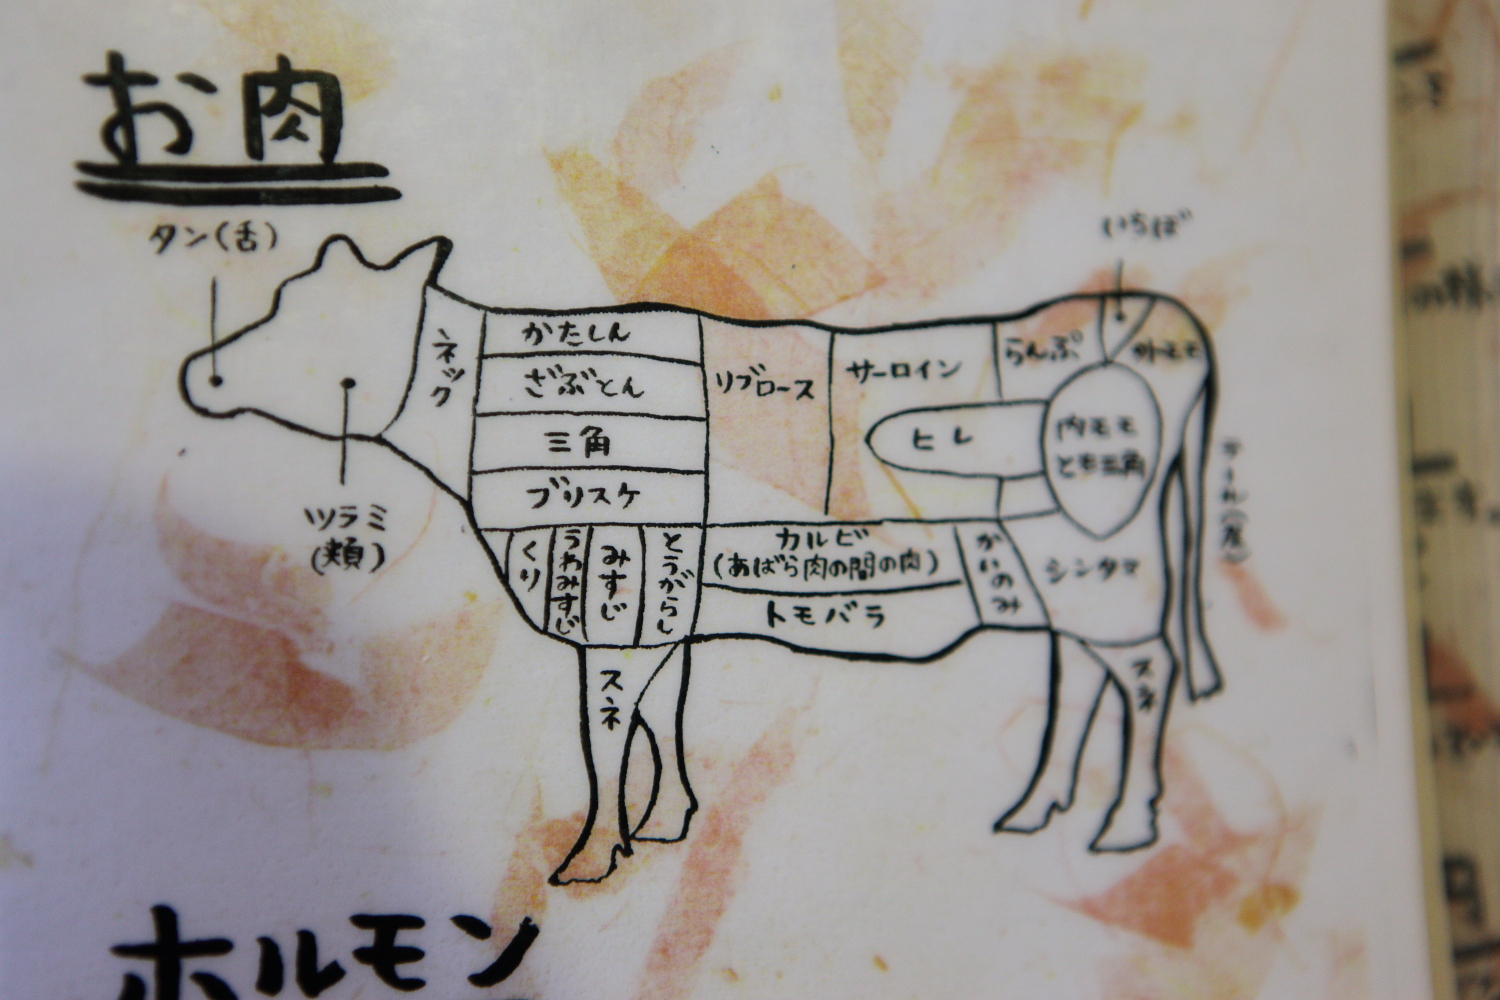 お肉
タン(舌)
いちぼ
ネック
かたしん
ざぶとん
三角
ブリスケ
リブロース
サーロイン
らんぷ
外モモ
ヒレ
内モモ
とも三角
テール(尾)
ツラミ
(頬)
くり
うわみすじ
みすじ
とうがらし
カルビ
(あばら肉の間の肉)
トモバラ
かいのみ
シンタマ
スネ
スネ
ホルモン